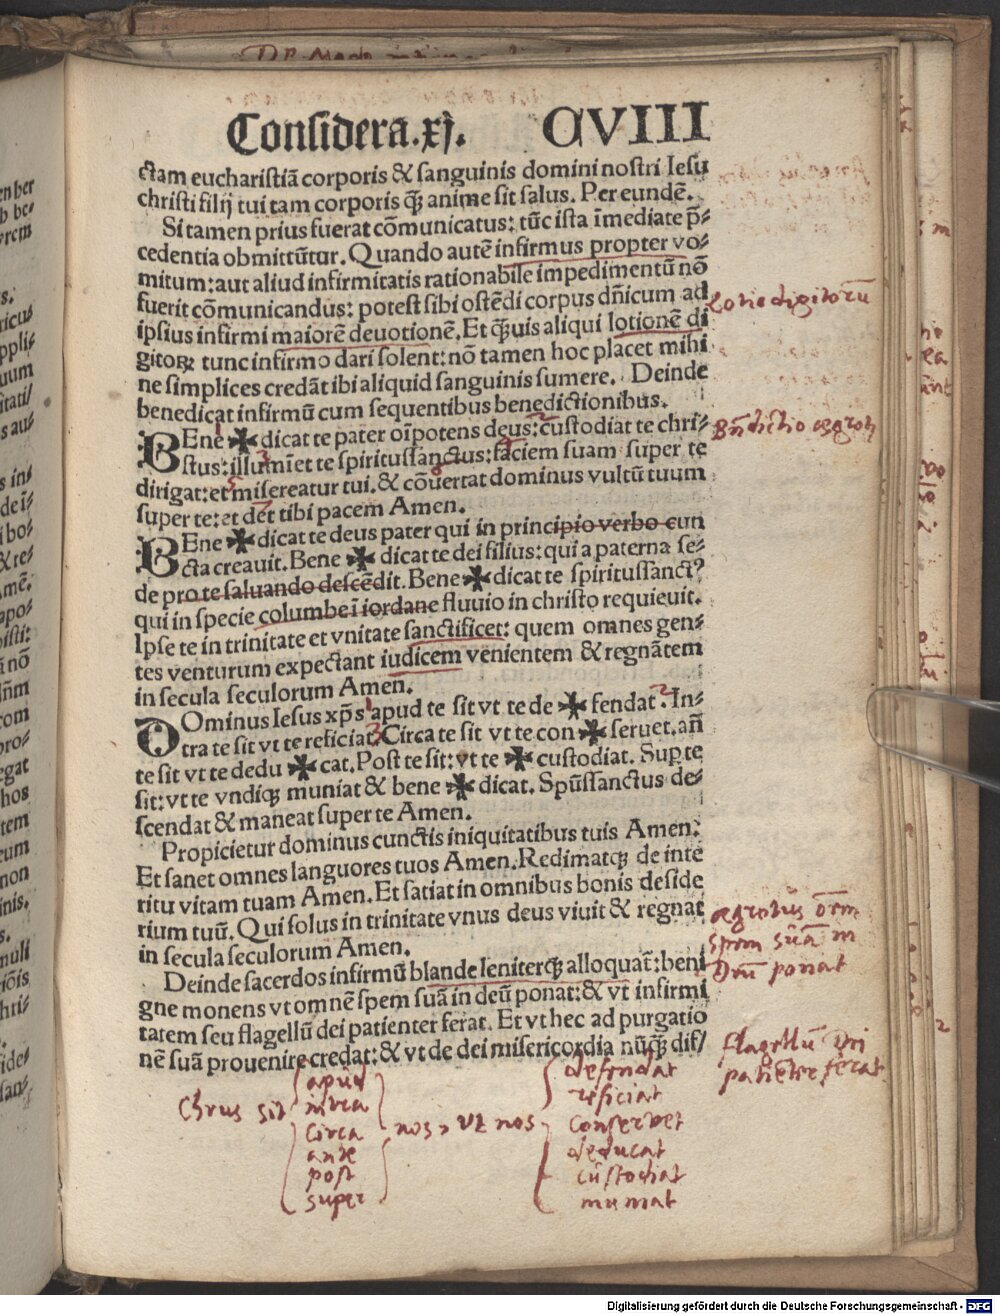 Considera.xj. CVIII
ctam euchariſtiā corporis & ſanguinis domini noſtri Ieſu
chriſti filij tui tam corporis q̄ȝ anime ſit ſalus. Per eundē.
Si tamen prius fuerat cōmunicatus: tūc iſta īmediate p̄⸗
cedentia obmittūtur. Quando autē infirmus propter vo⸗
mitum: aut aliud infirmitatis rationabile impedimentū nō
fuerit cōmunicandus: poteſt ſibi oſtēdi corpus dn̄icum ad
ipſius infirmi maiorē deuotionē. Et q̄ȝuis aliqui lotionē di
gitoꝝ tunc infirmo dari ſolent: nō tamen hoc placet mihi
ne ſimplices credāt ibi aliquid ſanguinis ſumere. Deinde
benedicat infirmū cum ſequentibus benedictionibus.
BEne ✠ dicat te pater oīpotens deus: cuſtodiat te chri⸗
ſtus: illumīet te ſpirituſſanctus: faciem ſuam ſuper te
dirigat: et miſereatur tui. & cōuertat dominus vultū tuum
ſuper te: et det tibi pacem Amen.
BEne ✠ dicat te deus pater qui in principio verbo cun
cta creauit. Bene ✠ dicat te dei filius: qui a paterna ſe⸗
de pro te saluando deſcēdit. Bene ✠ dicat te ſpirituſſanct⁹
qui in ſpecie columbe ī iordane fluuio in chriſto requieuit.
Ipſe te in trinitate et vnitate ſanctificet: quem omnes gen⸗
tes venturum expectant iudicem venientem & regnātem
in ſecula ſeculorum Amen.
DOminus Ieſus xp̄s apud te ſit vt te de ✠ fendat. In⸗
tra te ſit vt te reficiat. Circa te ſit vt te con ✠ ſeruet. an̄
te ſit vt te dedu ✠ cat. Poſt te ſit: vt te ✠ cuſtodiat. Suꝑ te
ſit: vt te vndiqȝ muniat & bene ✠ dicat. Spūſſanctus de⸗
ſcendat & maneat ſuper te Amen.
Propicietur dominus cunctis iniquitatibus tuis Amen:
Et ſanet omnes languores tuos Amen. Redimatqȝ de inte
ritu vitam tuam Amen. Et ſatiat in omnibus bonis deſide
rium tuū. Qui ſolus in trinitate vnus deus viuit & regnat
in ſecula ſeculorum Amen.
Deinde ſacerdos infirmū blande leniterqȝ alloquat̄: beni
gne monens vt omnē ſpem ſuā in deū ponat: & vt infirmi
tatem ſeu flagellū dei patienter ferat. Et vt hec ad purgatio
nē ſuā prouenire credat: & vt de dei miſericordia nūq̄ȝ diſ⸗
Lotio digitorū
Bn̄dictio aegroti
aegrotus om̄
spem suā in
Deū ponat
flagellū Dei
patienter ferat
Chrus sit
apud
intra
circa
ante
post
super
nos, ut nos
defendat
reficiat
conservet
deducat
custodiat
muniat
Digitalisierung gefördert durch die Deutsche Forschungsgemeinschaft - DFG